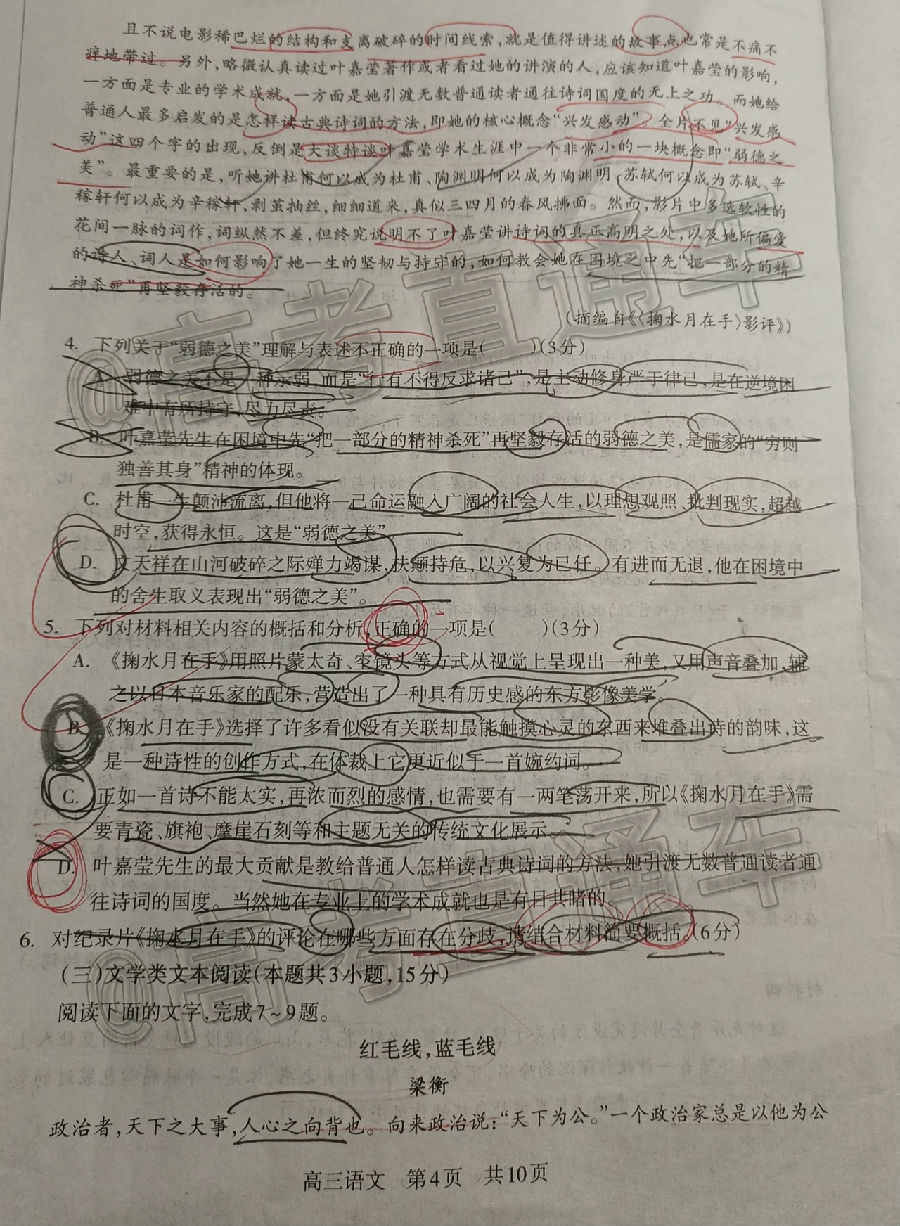 且不说电影稀巴烂的结构和支离破碎的时间线索,就是值得讲述的故事点也常是不痛不
痒地带过。另外,略微认真读过叶嘉莹著作或者看过她的讲演的人,应该知道叶嘉莹的影响,
一方面是专业的学术成就,一方面是她引渡无数普通读者通往诗词国度的无上之功。而她给
普通人最多启发的是怎样读古典诗词的方法,即她的核心概念“兴发感动”。全片不见“兴发感
动”这四个字的出现、反倒是大谈特谈叶嘉莹学术生涯中一个非常小的一块概念即“弱德之
美”。最重要的是,听她讲杜甫何以成为杜甫、陶渊明何以成为陶渊明、苏轼何以成为苏轼、辛
稼轩何以成为辛稼轩,剥茧抽丝,细细道来,真似三四月的春风拂面。然而,影片中多选软性的
花间一脉的词作,词纵然不差,但终究说明不了叶嘉莹讲诗词的真正高明之处,以及她所偏爱
的诗人、词人是如何影响了她一生的坚韧与持守的,如何教会她在困境之中先“把一部分的精
神杀死”再坚毅存活的。
(摘编自《〈掬水月在手〉影评》)
4. 下列关于“弱德之美”理解与表述不正确的一项是( )(3分)
A. 弱德之美不是 神示弱,而是“行有不得反求诸己”,是主动修身严于律己,是在逆境困
难中有所持守,尽力尽责。
B. 叶嘉莹先生在困境中先“把一部分的精神杀死”再坚毅存活的弱德之美,是儒家的“穷则
独善其身”精神的体现。
C. 杜甫一生颠沛流离,但他将一己命运融入广阔的社会人生,以理想观照、批判现实,超越
时空,获得永恒。这是“弱德之美”。
D. 文天祥在山河破碎之际殚力竭谋,扶颠持危,以兴复为已任。有进而无退,他在困境中
的舍生取义表现出“弱德之美”。
5. 下列对材料相关内容的概括和分析,正确的一项是( )(3分)
A. 《掬水月在手》用照片蒙太奇、变镜头等方式从视觉上呈现出一种美,又用声音叠加,辅
之以日本音乐家的配乐,营造出了一种具有历史感的东方影像美学。
B. 《掬水月在手》选择了许多看似没有关联却最能触摸心灵的东西来堆叠出诗的韵味,这
是一种诗性的创作方式,在体裁上它更近似于一首婉约词。
C. 正如一首诗不能太实,再浓而烈的感情,也需要有一两笔荡开来,所以《掬水月在手》需
要青瓷、旗袍、摩崖石刻等和主题无关的传统文化展示。
D. 叶嘉莹先生的最大贡献是教给普通人怎样读古典诗词的方法,她引渡无数普通读者通
往诗词的国度。当然她在专业上的学术成就也是有目共睹的。
6. 对纪录片《掬水月在手》的评论在哪些方面存在分歧,请结合材料简要概括。(6分)
(三)文学类文本阅读(本题共3小题,15分)
阅读下面的文字,完成7~9题。
红毛线,蓝毛线
梁衡
政治者,天下之大事,人心之向背也。向来政治说:“天下为公。”一个政治家总是以他为公
高三语文 第4页 共10页
@高考直通车
@高考直通车